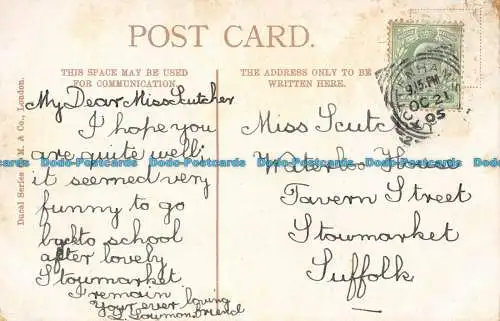 POST CARD.
THIS SPACE MAY BE USED
FOR COMMUNICATION.
THE ADDRESS ONLY TO BE
WRITTEN HERE.
My Dear Miss Scutcher
I hope you
are quite well;
it seemed very
funny to go
back to school
after lovely
Stowmarket
I remain
Your ever loving
Friend
Miss Scutcher
Waterloo House
Tavern Street
Stowmarket
Suffolk
9.15 PM
OC 21
05
Ducal Series
M. & Co., London.
Dodo-Postcards Dodo-Postcards Dodo-Postcards Dodo-Postcards